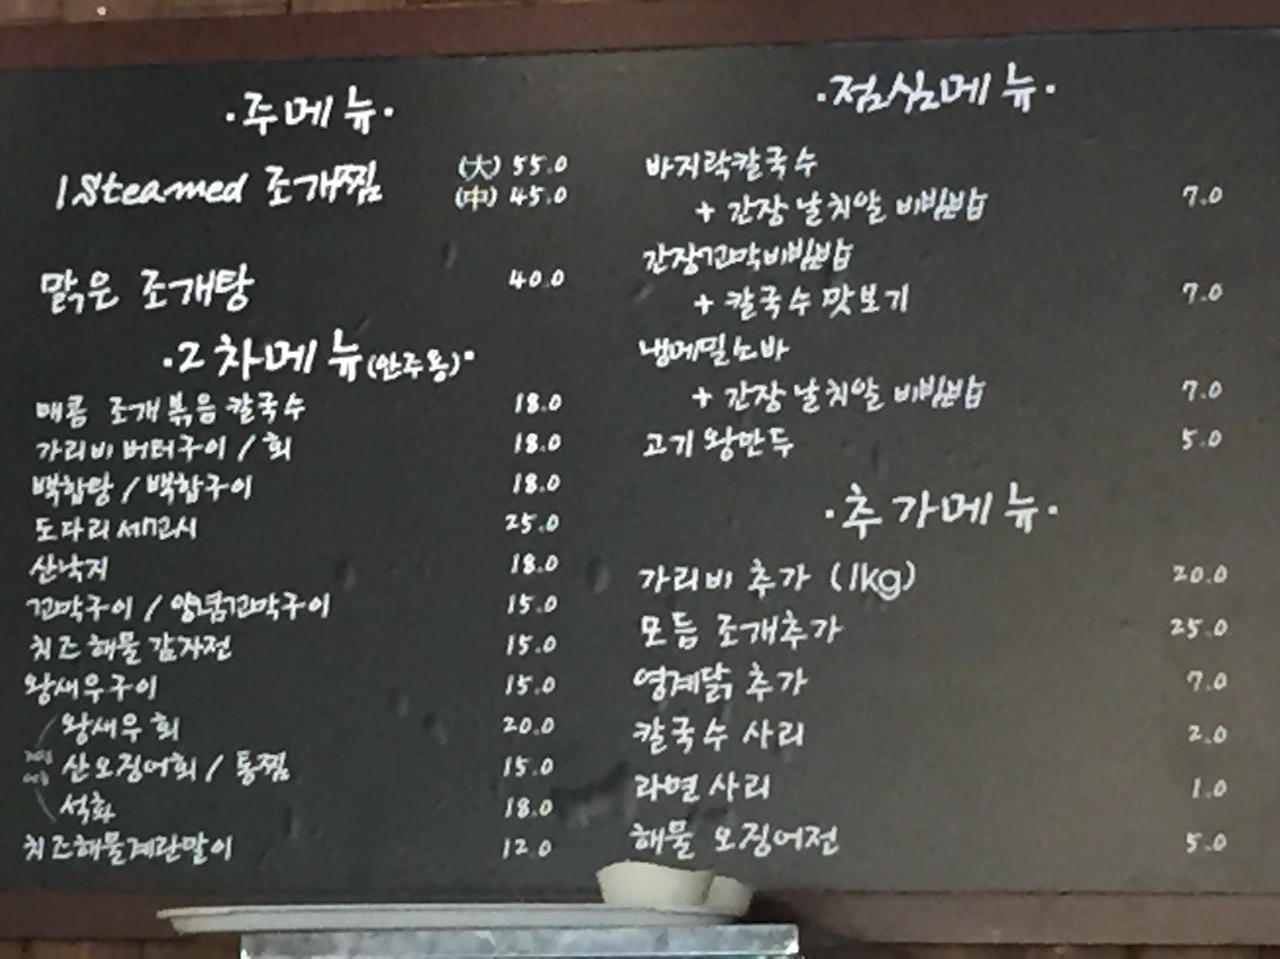 ·주메뉴·
/Steamed 조개찜 (大) 55.0
(中) 45.0
맑은 조개탕 40.0
·2차메뉴(안주용)·
매콤 조개볶음칼국수 18.0
가리비버터구이 / 회 18.0
백합탕 / 백합구이 18.0
도다리세꼬시 25.0
산낙지 18.0
꼬막구이 / 양념꼬막구이 15.0
치즈해물감자전 15.0
왕새우구이 15.0
왕새우회 20.0
산오징어회 / 통찜 15.0
석화 18.0
치즈해물계란말이 12.0
·점심메뉴·
바지락칼국수
+ 간장날치알 비빔밥 7.0
간장꼬막비빔밥
+ 칼국수맛보기 7.0
냉메밀소바
+ 간장날치알 비빔밥 7.0
고기왕만두 5.0
·추가메뉴·
가리비 추가 (1kg) 20.0
모듬 조개추가 25.0
영계닭 추가 7.0
칼국수 사리 2.0
라면사리 1.0
해물 오징어전 5.0